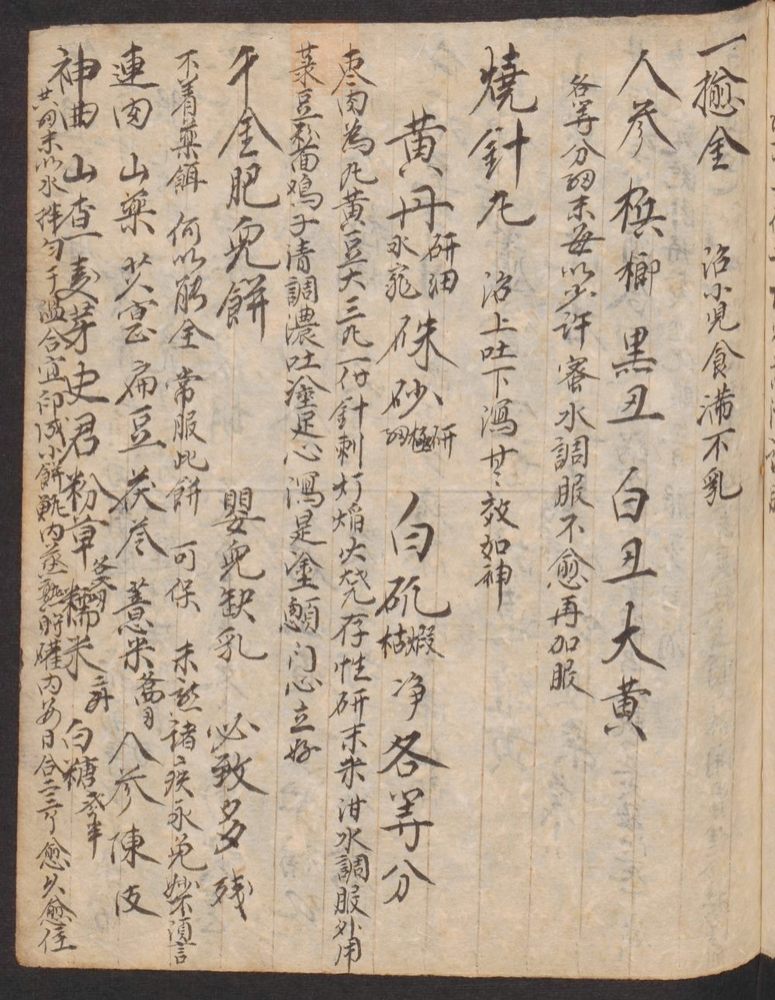 一捻金 治小兒食滿不乳
人參 檳榔 黑丑 白丑 大黃
各等分細末每以少許蜜水調服不愈再加服
燒針丸 治上吐下瀉甚效如神
黃丹研細水飛 硃砂研極細 白礬煅枯 净各等分
枣肉為丸黃豆大三丸一份針刺灯焰火燒存性研末米泔水調服外用
菉豆粉面鸡子清調濃吐塗足心瀉是塗顖门心立好
千金肥兒餅 嬰兒缺乳 必致多残
不着藥餌 何以能全 常服此餅 可保 未 諸疾永免妙不須言
連肉 山藥 芡实 扁豆 茯苓 薏米 人參 陳皮
神曲 山查 麦芽 史君 粉草 糯米 白糖
共细末以水拌匀干溫合宜印成小餅 內蒸熟貯礶內每日合二三个愈久愈佳